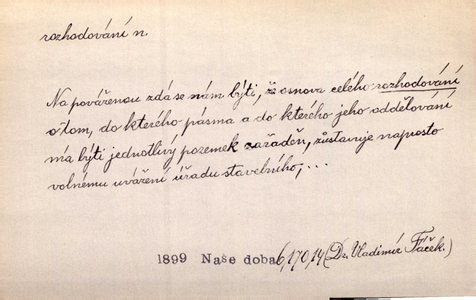 rozhodování n.
Na pováženou zdá se nám býti, že osnova celého rozhodování
o tom, do kterého pásma a do kterého jeho oddělování
má býti jednotlivý pozemek zařaděn, zůstavuje naprosto
volnému uvážení úřadu stavebního, ...
1899 Naše doba 6,170,14 (Dr. Vladimír Fáček.)